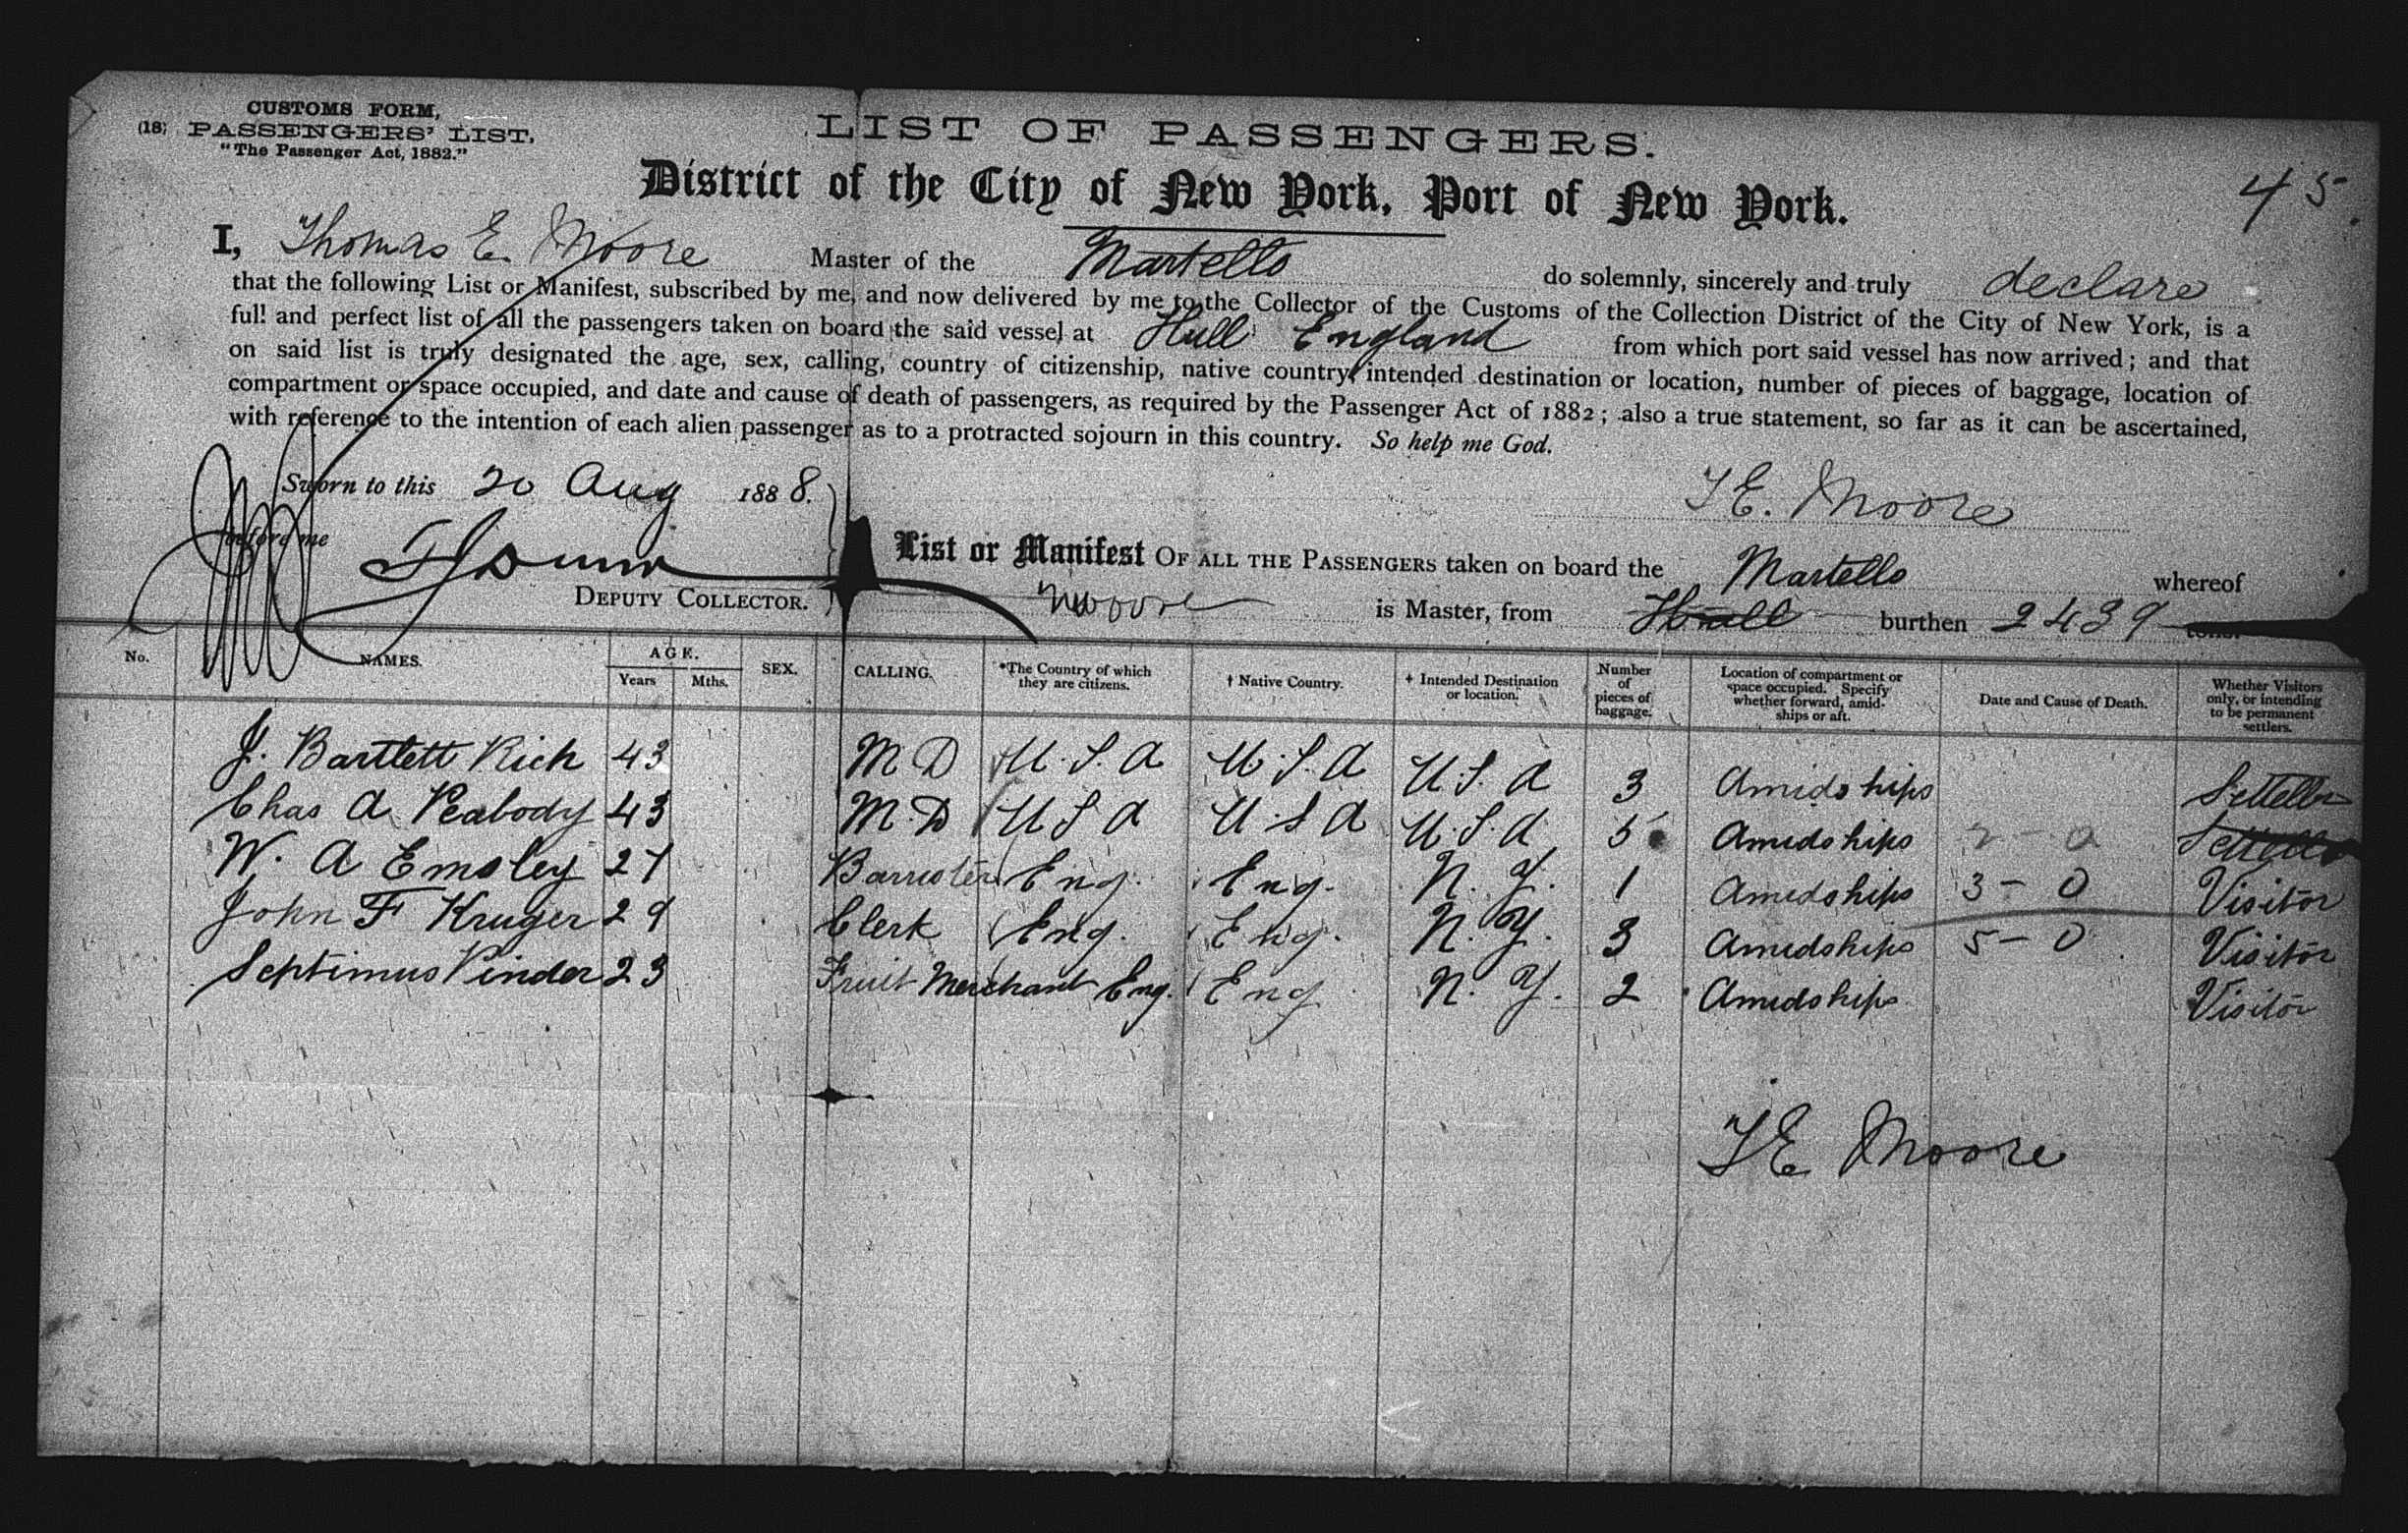 CUSTOMS FORM,
(18) PASSENGERS' LIST,
"The Passenger Act, 1882."
LIST OF PASSENGERS.
District of the City of New York, Port of New York.
45.
I, Thomas E. Moore Master of the Martello do solemnly, sincerely and truly declare
that the following List or Manifest, subscribed by me, and now delivered by me to the Collector of the Customs of the Collection District of the City of New York, is a
full and perfect list of all the passengers taken on board the said vessel at Hull England from which port said vessel has now arrived; and that
on said list is truly designated the age, sex, calling, country of citizenship, native country, intended destination or location, number of pieces of baggage, location of
compartment or space occupied, and date and cause of death of passengers, as required by the Passenger Act of 1882; also a true statement, so far as it can be ascertained,
with reference to the intention of each alien passenger as to a protracted sojourn in this country. So help me God.
Sworn to this 20 Aug 1888.
T E. Moore
before me
DEPUTY COLLECTOR.
List or Manifest OF ALL THE PASSENGERS taken on board the Martello whereof
Moore is Master, from Hull burthen 2439 tons.
No. NAMES. AGE. Years Mths. SEX. CALLING. *The Country of which they are citizens. † Native Country. ‡ Intended Destination or location. Number of pieces of baggage. Location of compartment or space occupied. Specify whether forward, amidships or aft. Date and Cause of Death. Whether Visitors only, or intending to be permanent settlers.
J. Bartlett Rich 43 M D U.S.A U.S.A U.S.A 3 Amidships
Chas A Peabody 43 M.D U S A U.S A U.S.A 5 Amidships 2 - 0
W. A Emsley 27 Barrister Eng. Eng. N. Y. 1 Amidships 3 - 0 Visitor
John F Kruger 29 Clerk Eng. Eng. N. Y. 3 Amidships 5 - 0 Visitor
Septimus Pinder 23 Fruit Merchant Eng. Eng N. Y. 2 Amidships Visitor
T E Moore